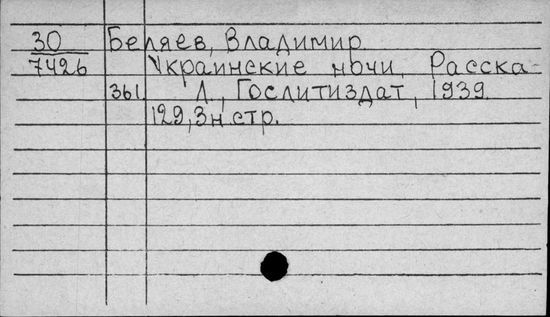 30 Беляев, Владимир.
7426 Украинские ночи. Расска-
зы. Л., Гослитиздат, 1939.
129, 3 н. стр.